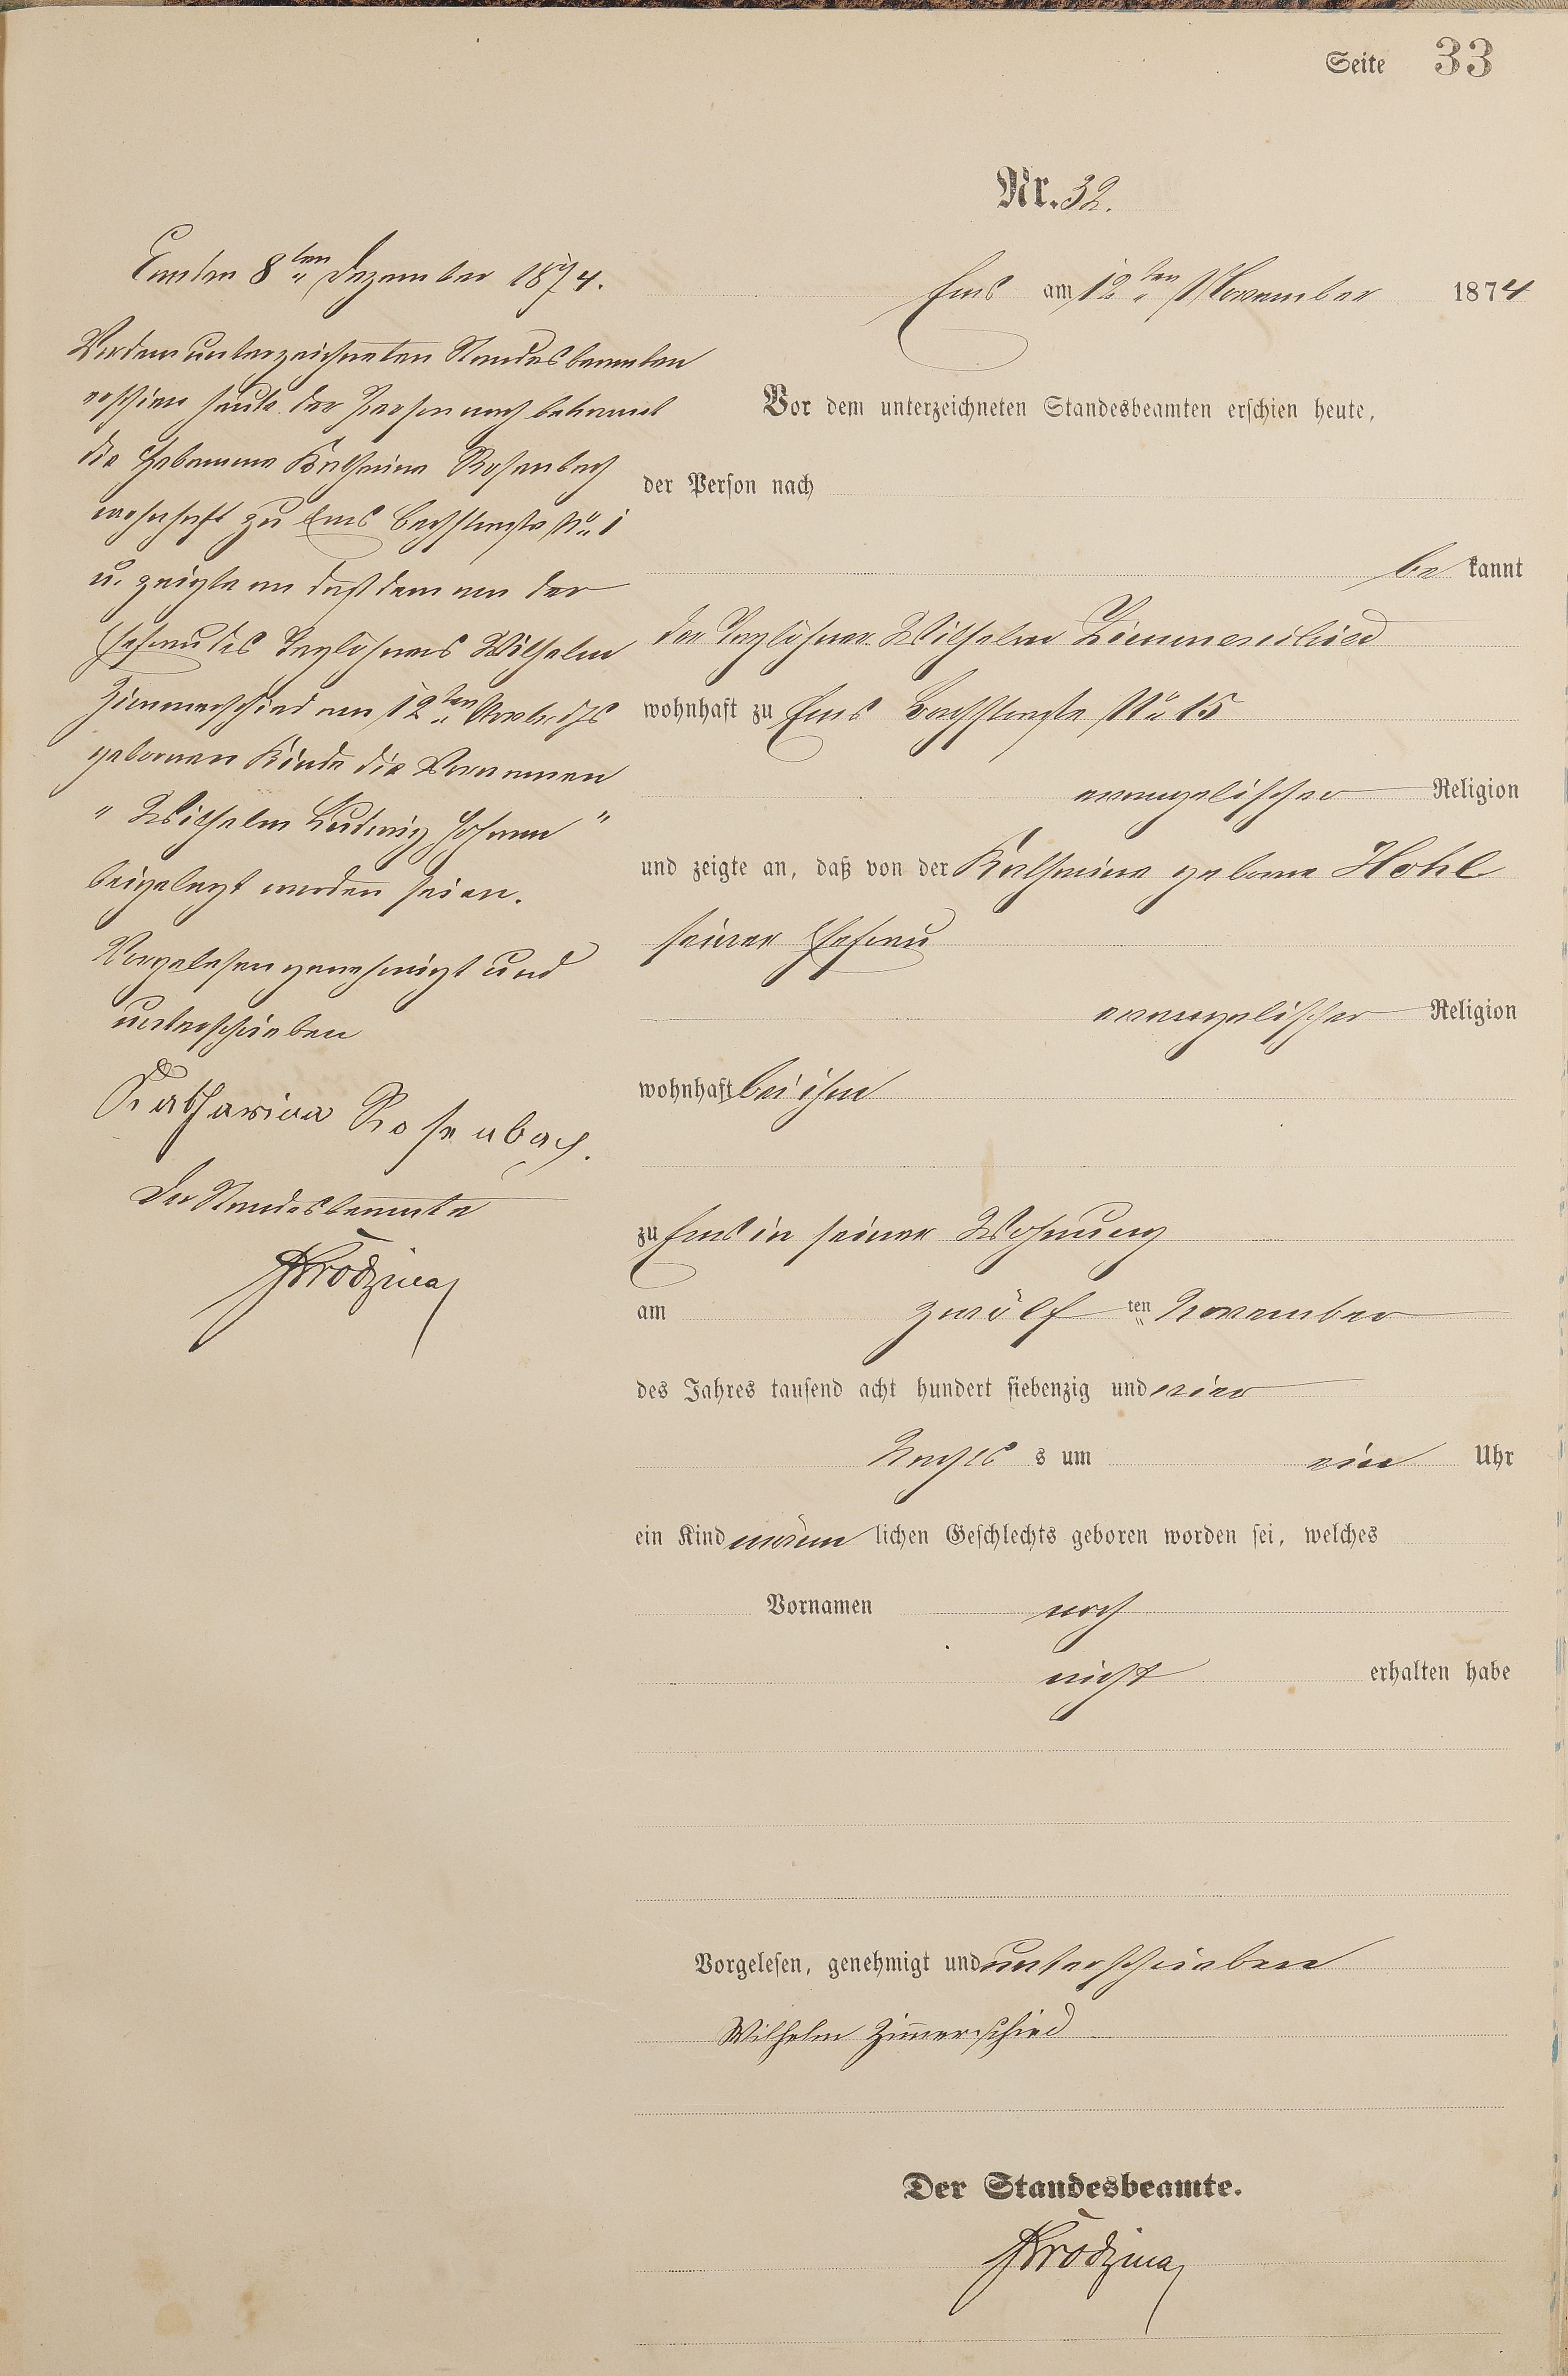 Seite 33
Nr. 32.
Ems den 8ten Dezember 1874.
Vor dem unterzeichneten Standesbeamten
erschien heute der Person nach bekannt
die Hebamme Katharina Rosenbach
wohnhaft zu Ems Bachstraße No 1
u. zeigte an daß dem von der
Ehefrau des Taglöhners Wilhelm
Zimmerschied am 12ten Novbr. d. Js
gebornen Kinde die Vornamen
"Wilhelm Ludwig Johann"
beigelegt worden seien.
Vorgelesen genehmigt und
unterschrieben
Katharina Rosenbach.
Der Standesbeamte
Ems am 12ten November 1874
Vor dem unterzeichneten Standesbeamten erschien heute,
der Person nach
be kannt
der Taglöhner Wilhelm Zimmerschied
wohnhaft zu Ems Bachstraße No 15
evangelischer Religion
und zeigte an, daß von der Katharina geborne Hohl
seiner Ehefrau
evangelischer Religion
wohnhaft bei ihm
zu Ems in seiner Wohnung
am zwölf ten November
des Jahres tausend acht hundert siebenzig und vier
Nachts s um ein Uhr
ein Kind männ lichen Geschlechts geboren worden sei, welches
Vornamen noch
nicht erhalten habe
Vorgelesen, genehmigt und unterschrieben
Wilhelm Zimmerschied
Der Standesbeamte.